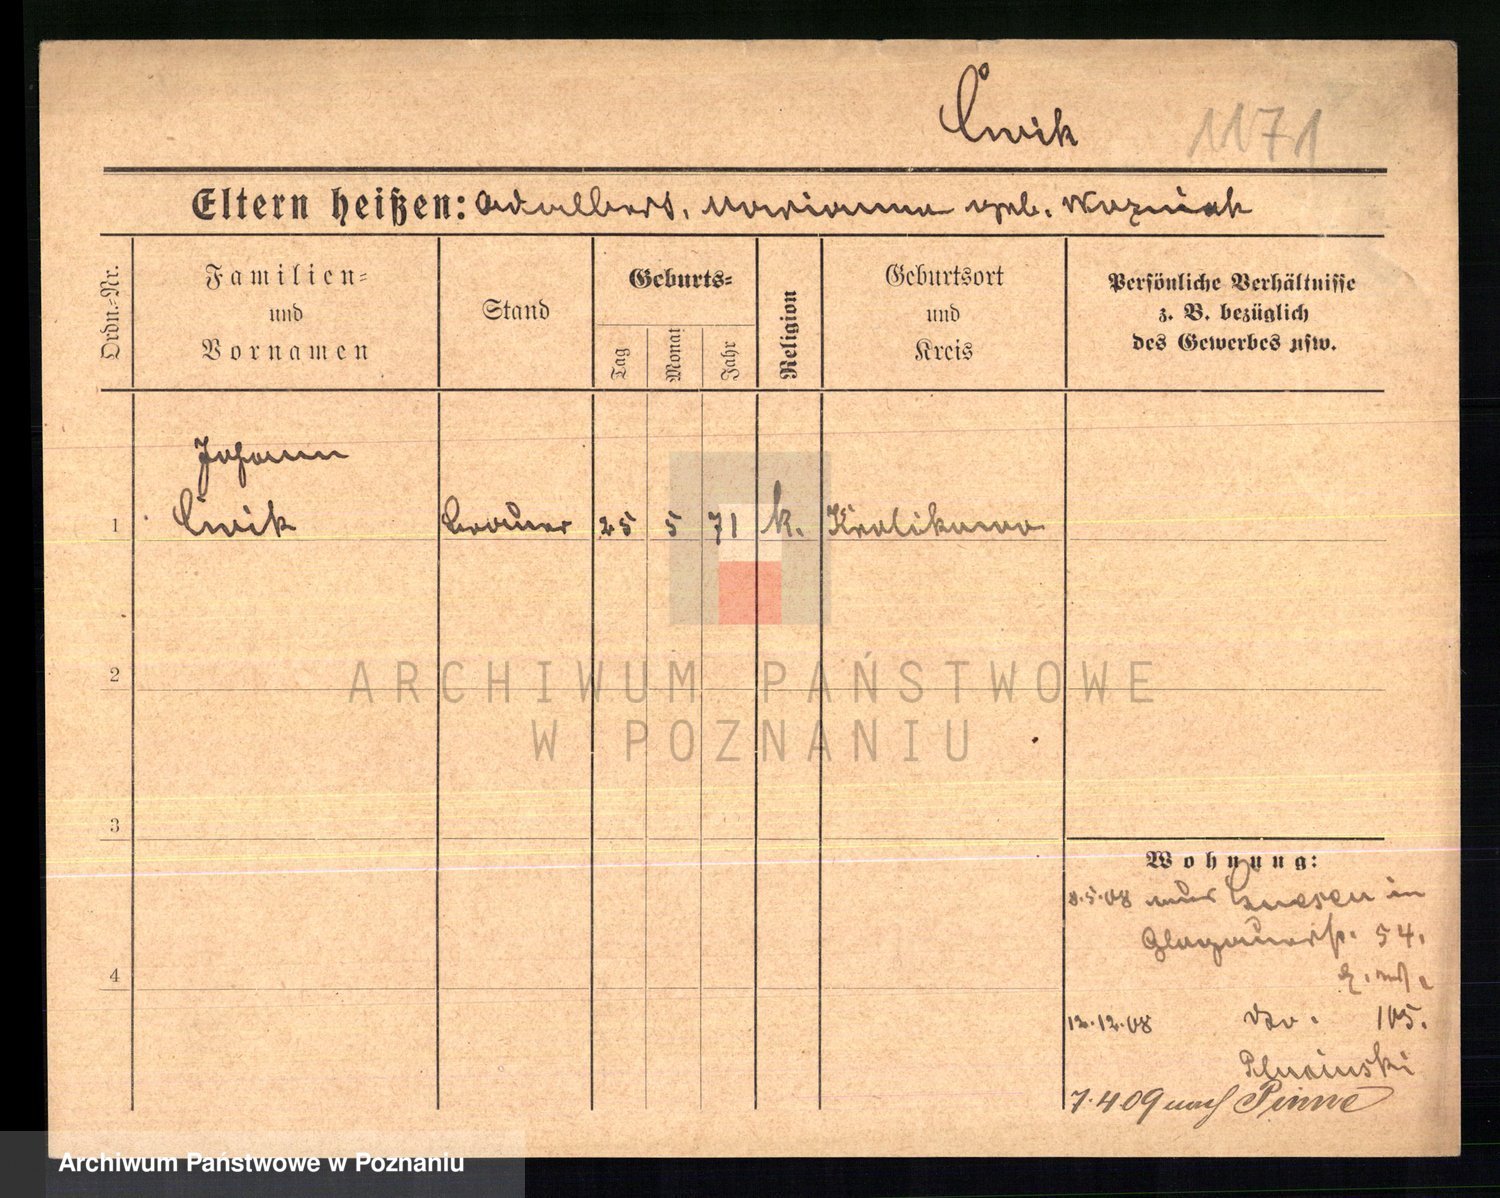 Ćwik 1171
Eltern heißen: Adalbert, Marianna geb. Wozniak
Ordn.-Nr.
Familien-
und
Vornamen
Stand
Geburts-
Tag
Monat
Jahr
Religion
Geburtsort
und
Kreis
Persönliche Verhältnisse
z. B. bezüglich
des Gewerbes usw.
Johann
1 Ćwik Brauer 25 5 71 k. Krolikowo
2
ARCHIWUM PAŃSTWOWE
W POZNANIU
3
Wohnung:
8.5.08 aus Gnesen in
Glogauerstr. 54.
12.12.08 dto. 105.
Plucinski
7.4 09 nach Pinne
4
Archiwum Państwowe w Poznaniu